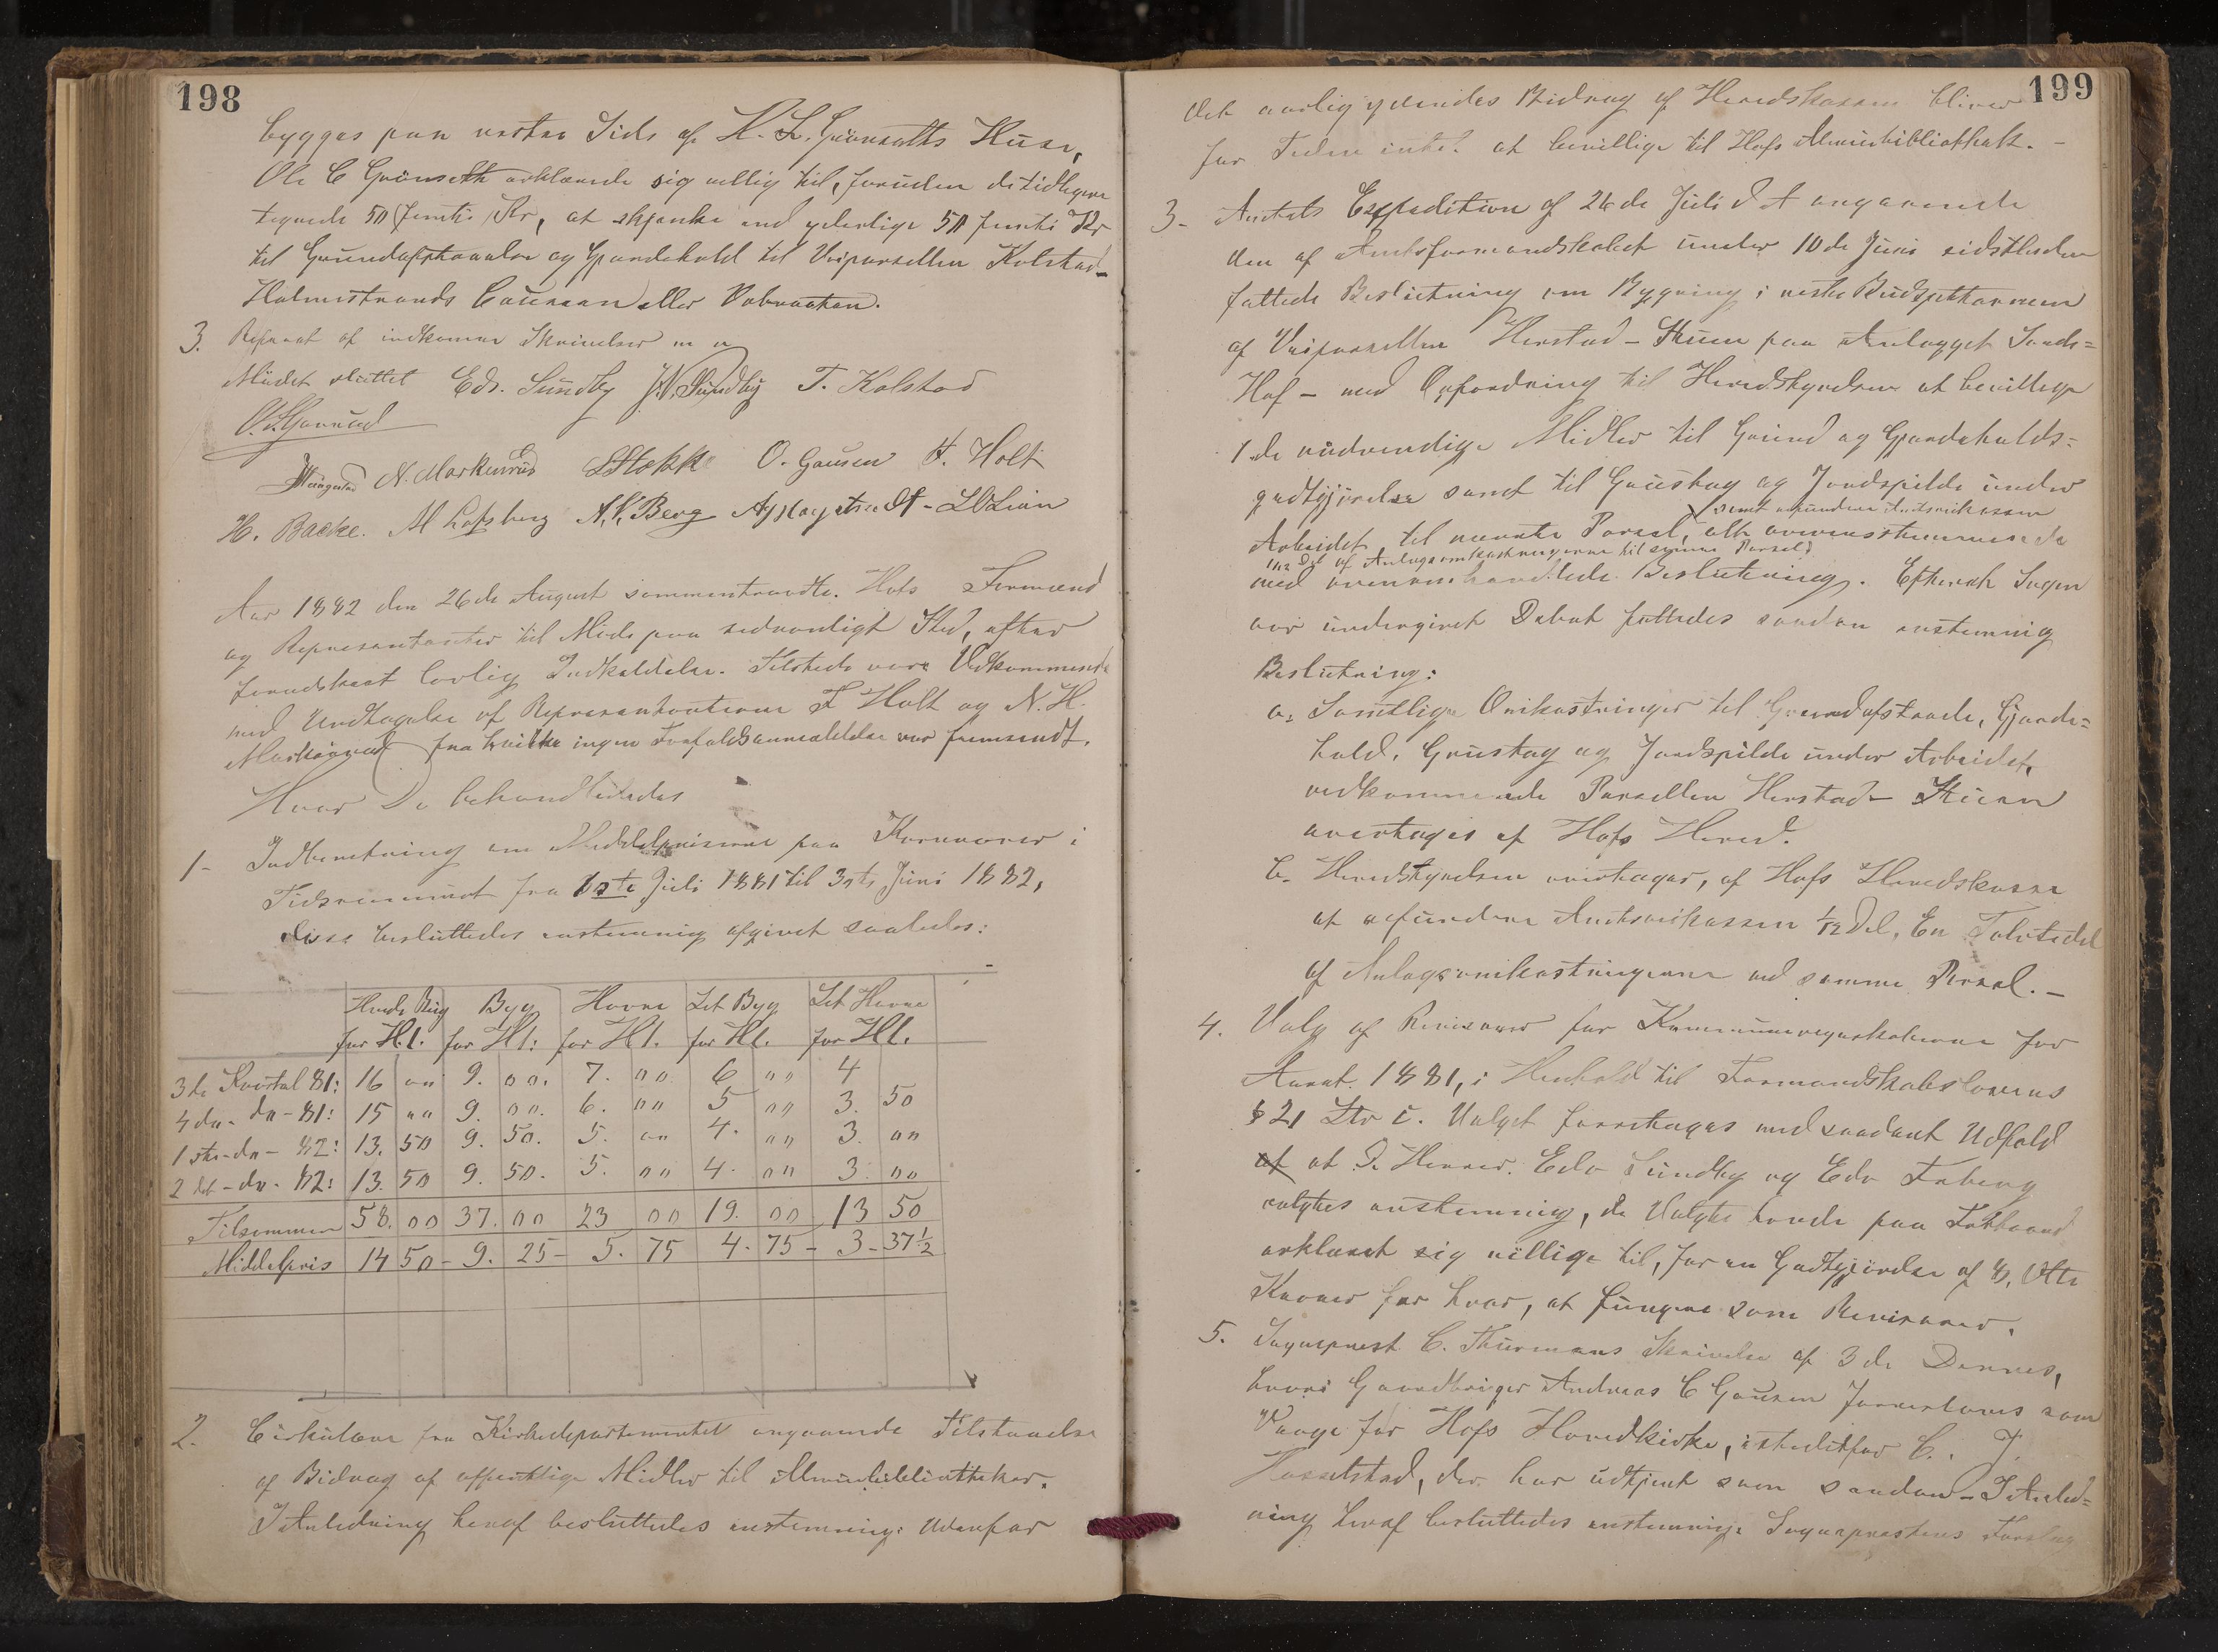 198
bygges paa vestre Side af K. L. Grönseths Huse,
Ole C Grönseth erklærede sig villig til, foruden de tidligere
tegnede 50 (femti) Kr, at skjænke end yderlige 50 femti Kr
til Grundafstaaelse og Gjærdehold til Veiparsellen Kolstad-
Holmestrands Caussen eller Vebraaten.
3. Referat af indkomne Skrivelser m m
Mödet sluttet Edv. Sundby J. N. Sundby T. Kolstad
O. S. Gunnerud
N. Markerud S Stokke O. Gausen F. Holt
H. Backe. M Lofsberg A. C. Berg L O Lian
Aar 1882 den 26de August sammentraadte Hofs Formænd
og Repræsentanter til Möde paa sedvanligt Sted, efter
forudskeet lovlig Indkaldelse. Tilstede vare Vedkommende
med Undtagelse af Repræsentanterne F Holt og N. H.
Markerud fra hvilke ingen Forfaldsanmeldelse var fremsendt.
Hvor Da behandledes
1- Indberetning om Middelpriserne paa Kornvarer i
Tidsrummet fra 1ste Juli 1881 til 30te Juni 1882,
disse besluttedes enstemmig afgivet saaledes:
Hvede Rug Byg Havre Let Byg Let Havre
for Hl. for Hl: for Hl. for Hl. for Hl.
3de Kvartal 81: 16 00 9. 00. 7. 00 6 00 4
4de - do - 81: 15 00 9. 00. 6. 00 5 00 3. 50
1ste - do - 82: 13. 50 9. 50. 5. 00 4. 00 3. 00
2det - do - 82: 13. 50 9. 50. 5. 00 4. 00 3. 00
Tilsammen 58. 00 37. 00 23 00 19. 00 13 50
Middelpris 14 50 - 9. 25 - 5. 75 4. 75 - 3 - 37½
2. Cirkulære fra Kirkedepartementet angaaende Tilstaaelse
af Bidrag af offentlige Midler til Almuebibliotheker.
I Anledning heraf besluttedes enstemmig: Udenfor
199
det aarlig ydendes Bidrag af Heredskassen bliver
for Tiden intet at bevillige til Hofs Almuebibliothek. -
3- Amtets Expedition af 26de Juli d A angaaende
den af Amtsformandskabet under 10de Juni sidstleden
fattede Beslutning om Bygning i neste Budgetterminen
af Veiparsellen Herstad - Skuen paa Anlægget Sande=
Hof - med Opfordring til Heredstyrelsen at bevillige
1. de nödvendige Midler til Grund og Gjærdeholds=
godtgjörelse samt til Grustag og Jordspilde under
samt refundere Amtsveikassen
Arbeidet til nævnte Parsel, alt overensstemmende
1/12 Del af Anlægsomkostningerne til samme Parsel
med ovenomhandlede Beslutning. Efterat Sagen
var undergivet Debat fattedes saadan enstemmig
Beslutning:
a, Samtlige Omkostninger til Grundafstaaelse, Gjærde=
hold, Grustag og Jordspilde under Arbeidet,
vedkommende Parsellen Herstad - Skuen
overtages af Hofs Hered.
b. Heredstyrelsen overtager, af Hofs Heredskasse
at refundere Amtsveikassen 1/12 Del, En Tolvtedel
af Anlægsomkostningerne ved samme Parsel. -
4. Valg af Revisorer for Kommuneregnskaberne for
Aaret 1881, i Henhold til Formandskabslovens
§ 21 Ltr c. Valget foretages med saadant Udfald
at D. Herrer. Edv Sundby og Edv Foberg
valgtes enstemmig, de Valgte havde paa Forhaand
erklæret sig villige til, for en Godtgjörelse af 8, Otte
Kroner for hver, at fungere som Revisorer.
5. Sognepræst C. Thurmans Skrivelse af 3de Dennes,
hvori Gaardbruger Andreas C Gausen foreslaaes som
Værge for Hofs Hovedkirke, istedetfor C. J.
Hasselstad, der har udtjent som saadan - I Anled=
ning heraf besluttedes enstemmig: Sognepræstens Forslag